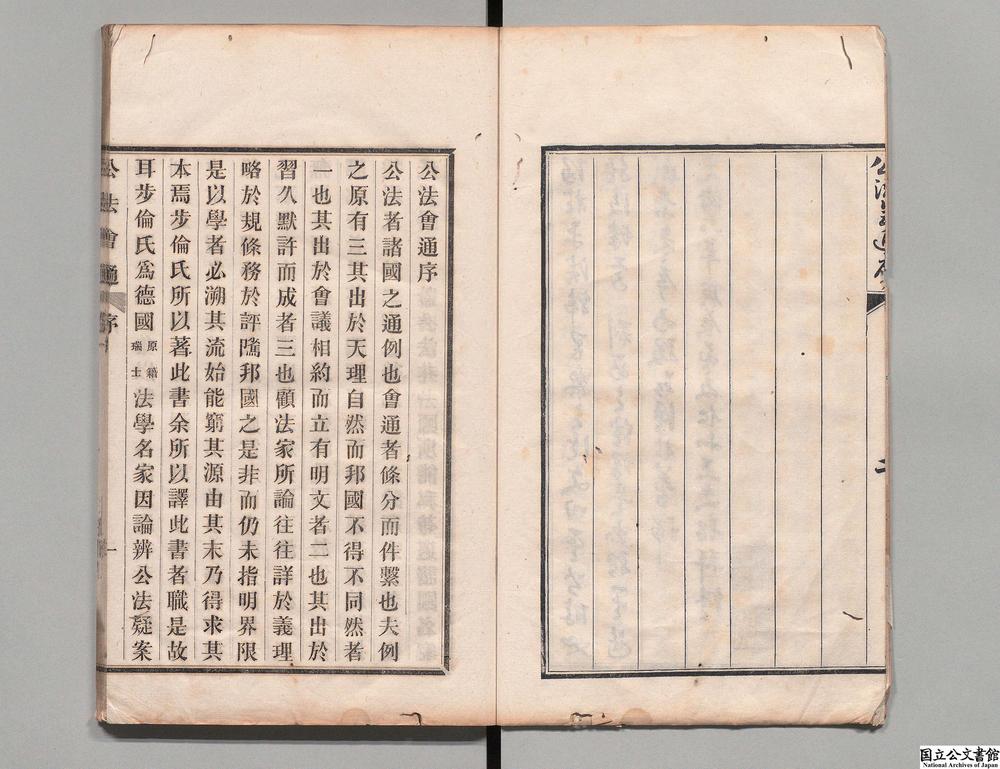 公法會通序
二
公法會通序
公法者諸國之通例也會通者條分而件繫也夫例
之原有三其出於天理自然而邦國不得不同然者
一也其出於會議相約而立有明文者二也其出於
習久默許而成者三也顧法家所論往往詳於義理
略於規條務於評隲邦國之是非而仍未指明界限
是以學者必溯其流始能窮其源由其末乃得求其
本焉步倫氏所以著此書余所以譯此書者職是故
耳步倫氏爲德國原籍瑞士法學名家因論辨公法疑案
公法會通
序
一
国立公文書館
National Archives of Japan